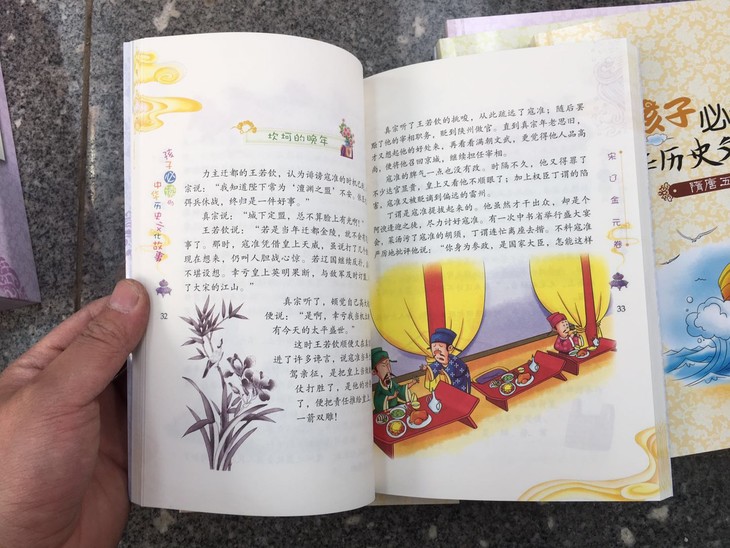 坎坷的晚年
力主迁都的王若钦，认为诽谤寇准的时机已
宗说：“我知道陛下常为‘澶渊之盟’不安。
得兵休战，终归是一件好事。”
真宗说：“城下定盟，总不算脸上有光啊！”
王若钦说：“若是当年迁都金陵，就不会
事了。那时，寇准凭借皇上天威，虽说打了
现在想来，仍叫人胆战心惊。若辽国继续反扑，
不堪设想。幸亏皇上英明果断，与敌军及时
了大宋的江山。”
真宗听了，顿觉自己英
便说：“是啊，幸亏我当机
有今天的太平盛世。”
这时王若钦顺便又在真
进了许多谗言，说寇准当年
驾亲征，是把皇上当做
仗打胜了，是他的
了，便把责任推给皇上
一箭双雕！
孩子必读的
中华历史文化故事
32
真宗听了王若钦的挑唆，从此疏远了寇准；随后罢
黜了他的宰相职务，贬到陕州做官。直到真宗年老思旧，
才又想起他的好处来，再看看满朝文武，更觉得他人品高
尚，便将他召回京城，继续担任宰相。
寇准的脾气一点也没有改。时隔不久，他又得罪了
不少达官显贵，皇上又看他不顺眼了；加上权臣丁谓的陷
害，寇准又被贬谪到偏远的雷州。
丁谓是寇准提拔起来的。他虽然才干出众，却过于
阿谀逢迎之徒，尽力讨好寇准。有一次中书省举行盛大宴
会，菜汤污了寇准的胡须，丁谓连忙离座去揩。不料寇准
严厉地批评他说：“你身为参政，是国家大臣，怎能这样
宋辽金元卷
33
孩子必
历史文
隋唐五